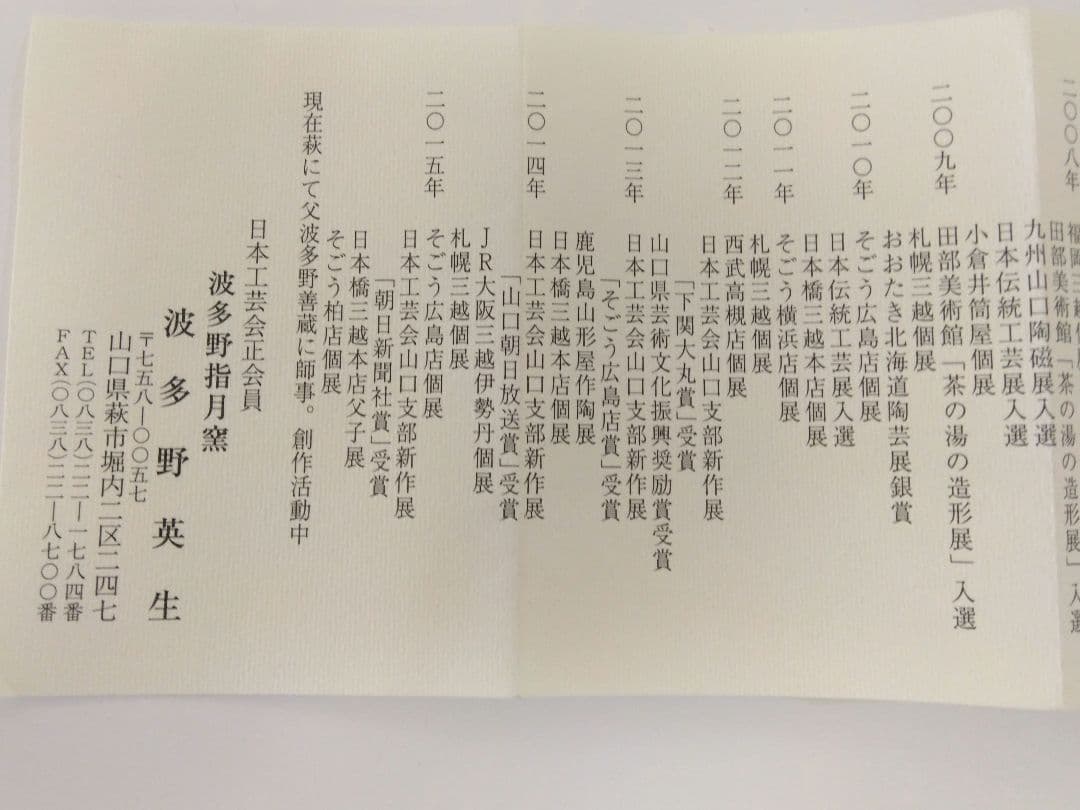 二〇〇八年
福岡三越個展
田部美術館「茶の湯の造形展」入選
九州山口陶磁展入選
日本伝統工芸展入選
小倉井筒屋個展
二〇〇九年 田部美術館「茶の湯の造形展」入選
札幌三越個展
おおたき北海道陶芸展銀賞
二〇一〇年 そごう広島店個展
日本伝統工芸展入選
日本橋三越本店個展
二〇一一年 そごう横浜店個展
札幌三越個展
二〇一二年 西武高槻店個展
日本工芸会山口支部新作展
「下関大丸賞」受賞
山口県芸術文化振興奨励賞受賞
二〇一三年 日本工芸会山口支部新作展
「そごう広島店賞」受賞
鹿児島山形屋作陶展
日本橋三越本店個展
二〇一四年 日本工芸会山口支部新作展
「山口朝日放送賞」受賞
ＪＲ大阪三越伊勢丹個展
札幌三越個展
二〇一五年 そごう広島店個展
日本工芸会山口支部新作展
「朝日新聞社賞」受賞
日本橋三越本店父子展
そごう柏店個展
現在萩にて父波多野善蔵に師事。創作活動中
日本工芸会正会員
波多野指月窯
波多野英生
〒七五八―〇〇五七
山口県萩市堀内二区二四七
ＴＥＬ（〇八三八）二二―一七八四番
ＦＡＸ（〇八三八）二二―八七〇〇番